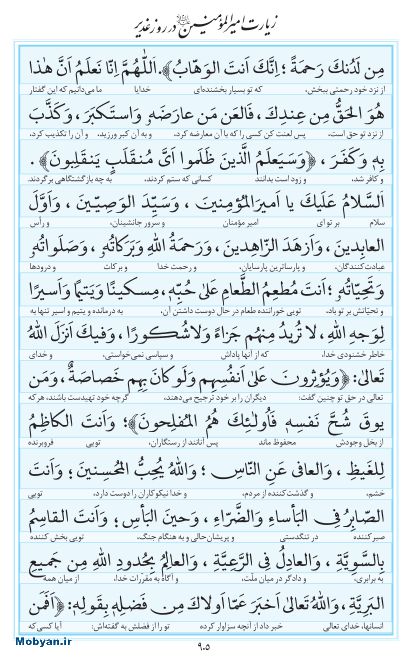 زیارت امیرالمؤمنین در روز غدیر
مِن لَدُنكَ رَحمَةً ؛ اِنَّكَ اَنتَ الوَهّابُ﴾. اَللّٰهُمَّ اِنّا نَعلَمُ اَنَّ هٰذا
از نزد خود رحمتی ببخش، که تو بسیار بخشنده‌ای خدایا ما می‌دانیم که این گفتار
هُوَ الحَقُّ مِن عِندِكَ ، فَالعَن مَن عارَضَهُ وَاستَكبَرَ ، وَكَذَّبَ
از نزد تو حق است، پس لعنت کن کسی را که با آن معارضه کرد، و به آن کبر ورزید، و آن را تکذیب کرد،
بِهِ وَكَفَرَ ، ﴿وَسَيَعلَمُ الَّذينَ ظَلَموا اَىَّ مُنقَلَبٍ يَنقَلِبونَ﴾ .
و کافر شد، و زود است بدانند کسانی که ستم کردند، به چه بازگشتگاهی برگردند.
اَلسَّلامُ عَلَيكَ يا اَميرَالمُؤمِنينَ ، وَسَيِّدَ الوَصِيّينَ ، وَاَوَّلَ
سلام بر تو ای امیر مؤمنان و سرور جانشینان، و رأس
العابِدينَ ، وَاَزهَدَ الزّاهِدينَ ، وَرَحمَةُ اللهِ وَبَرَكاتُهُ ، وَصَلَواتُهُ
عبادت‌کنندگان، و پارساترین پارسایان، و رحمت خدا و برکات و درودها
وَتَحِيّاتُهُ ؛ اَنتَ مُطعِمُ الطَّعامِ عَلىٰ حُبِّهِ ، مِسكينًا وَيَتيمًا وَاَسيرًا
و تحیّاتش بر تو باد، تویی خوراننده طعام در حال دوست داشتن آن، به درمانده و یتیم و اسیر تنها به
لِوَجهِ اللهِ ، لا تُريدُ مِنهُم جَزاءً وَلا شُكورًا ، وَفيكَ اَنزَلَ اللهُ
خاطر خشنودی خدا، که از آنها پاداش و سپاسی نمی‌خواستی، و خدای
تَعالىٰ: ﴿وَيُؤثِرونَ عَلىٰ اَنفُسِهِم وَلَو كانَ بِهِم خَصاصَةٌ ، وَمَن
تعالی در حق تو چنین گفت: دیگران را بر خود ترجیح می‌دهند، گرچه خود تهیدست باشند، هرکه
يوقَ شُحَّ نَفسِهِ فَاُولٰئِكَ هُمُ المُفلِحونَ﴾؛ وَاَنتَ الكاظِمُ
از بخل وجودش محفوظ ماند پس آنانند از رستگاران، تویی فروبرنده
لِلغَيظِ ، وَالعافى عَنِ النّاسِ ؛ وَاللهُ يُحِبُّ المُحسِنينَ؛ وَاَنتَ
خشم، و گذشت‌کننده از مردم، و خدا نیکوکاران را دوست دارد، تویی
الصّابِرُ فِى البَأساءِ وَالضَّرّاءِ ، وَحينَ البَأسِ؛ وَاَنتَ القاسِمُ
صبرکننده در تنگدستی و پریشان‌حالی و به هنگام جنگ، تویی بخش کننده
بِالسَّوِيَّةِ ، وَالعادِلُ فِى الرَّعِيَّةِ ، وَالعالِمُ بِحُدودِ اللهِ مِن جَميعِ
به برابری، و دادگر در میان ملّت، و آگاه به مقررات خدا، از میان همه
البَرِيَّةِ، وَاللهُ تَعالىٰ اَخبَرَ عَمّا اَولاكَ مِن فَضلِهِ بِقَولِهِ: ﴿اَفَمَن
انسانها، خدای تعالی خبر داد از آنچه سزاوار کرده تو را از فضلش به گفته‌اش: آیا کسی که
۹۰۵
Mobyan.ir